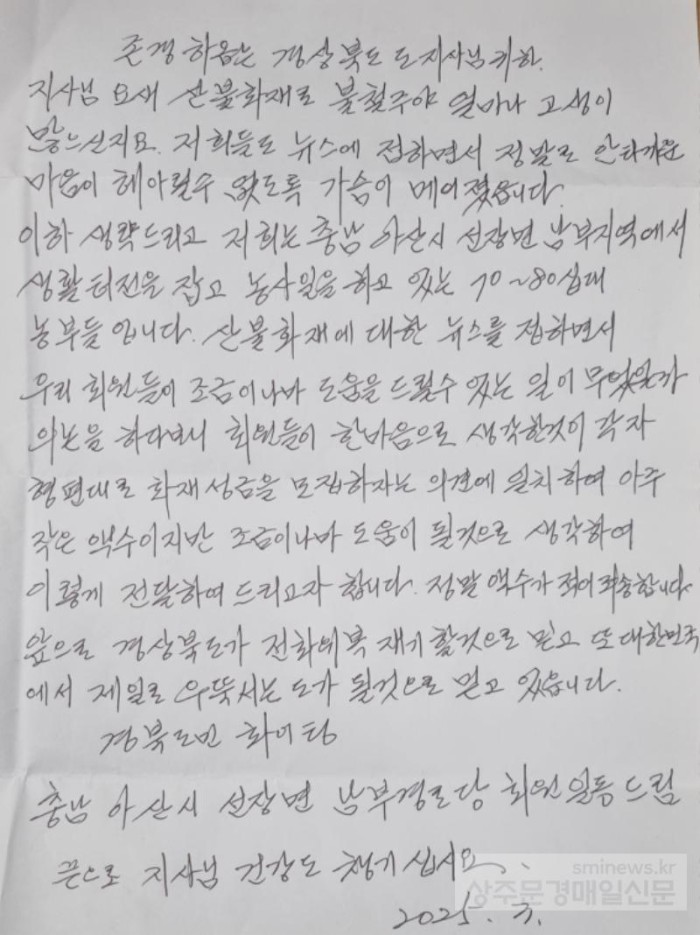 존경하옵는 경상북도 도지사님 귀하.
지사님 요새 산불화재로 불철주야 얼마나 고생이
많으신지요. 저희들도 뉴스에 접하면서 정말로 안타까운
마음이 헤아릴수 없도록 가슴이 메어졌읍니다.
이하 생략드리고 저희는 충남 아산시 선장면 남부지역에서
생활터전을 잡고 농사일을 하고 있는 70~80십대
농부들 입니다. 산불화재에 대한 뉴스를 접하면서
우리 회원들이 조금이나마 도움을 드릴수 있는 일이 무엇일까
의논을 하다보니 회원들이 한마음으로 생각한것이 각자
형편대로 화재성금을 모집하자는 의견에 일치하여 아주
작은 액수이지만 조금이나마 도움이 될것으로 생각하여
이렇게 전달하여 드리고자 합니다. 정말 액수가 적어 죄송합니다
앞으로 경상북도가 전화위복 재기할것으로 믿고 또 대한민국
에서 제일로 우뚝서는 도가 될것으로 믿고 있읍니다.
경북도민 화이팅
충남 아산시 선장면 남부경로당 회원일동 드림
끝으로 지사님 건강도 챙기십시요.
2025. 3.
sminews.kr
상주문경매일신문